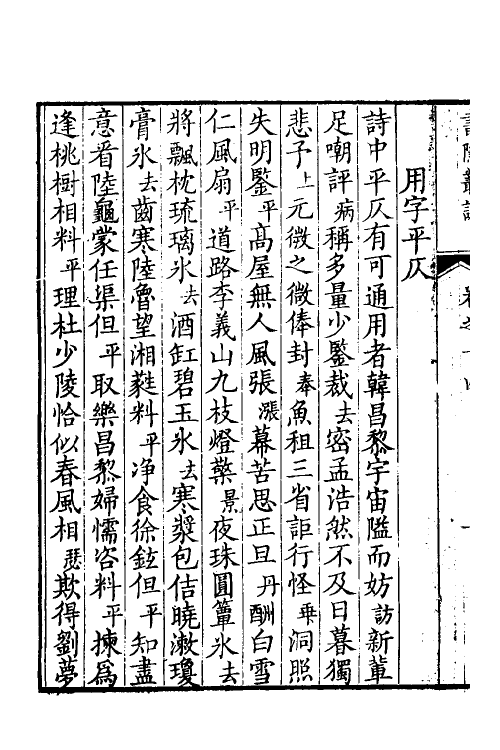 用字平仄
詩中平仄有可通用者韓昌黎宇宙隘而妨訪新輩
足嘲評病稱多量少鑒裁去密孟浩然不及日暮獨
悲予上元微之微俸封奉魚租三省詎行怪乗洞照
失明鑒平高屋無人風張漲幕苦思正旦丹酬白雪
仁風扇平道路李義山九枝燈檠景夜珠圓簟氷去
將飄枕琉璃氷去酒缸碧玉氷去寒漿包佶曉漱瓊
膏氷去齒寒陸魯望湘蕤料平淨食徐鉉但平知盡
意看陸龜蒙任渠但平取樂昌黎婦懦咨料平揀為
逢桃樹相料平理杜少陵恰似春風相瑟欺得劉夢